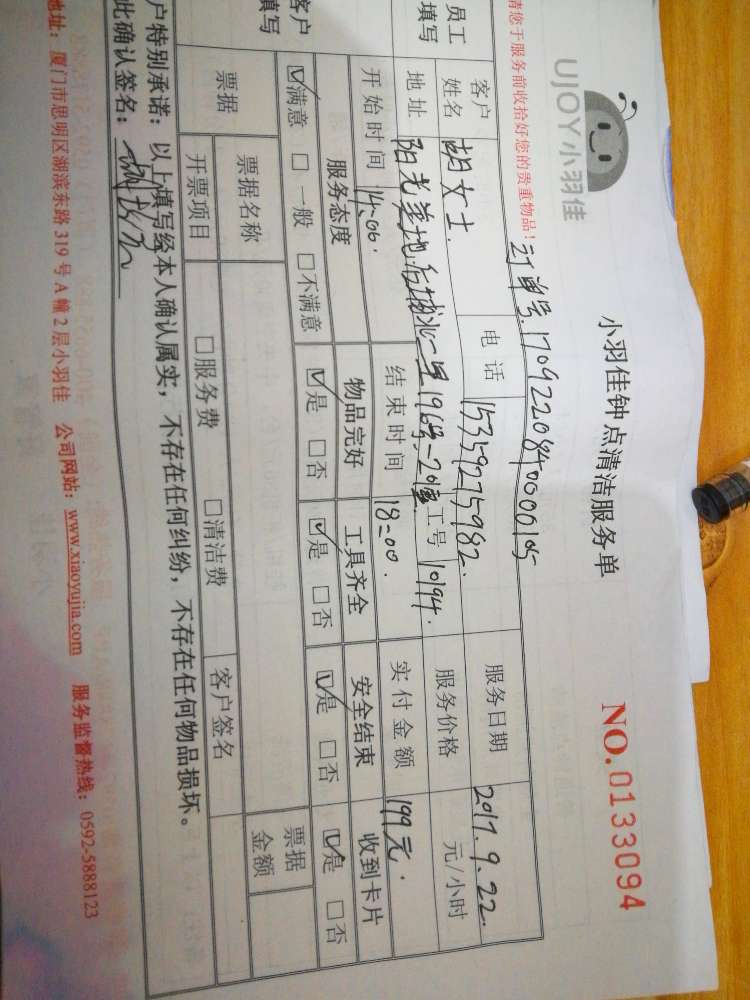 UJOY小羽佳
小羽佳钟点清洁服务单
NO.0133094
请您于服务前收拾好您的贵重物品!
订单号.170922084000010
员工填写
客户姓名 胡女士. 电话 15359275982. 服务日期 2017.9.22.
地址 阳光美地 196号 工号 10194. 服务价格 元/小时
开始时间 14:00. 结束时间 18:00. 实付金额 199元.
客户填写
服务态度 物品完好 工具齐全 安全结束 收到卡片
☑满意 □一般 □不满意 ☑是 □否 ☑是 □否 ☑是 □否 ☑是 □否
票据 票据名称 票据金额
开票项目 □服务费 □清洁费 客户签名
户特别承诺:以上填写经本人确认属实,不存在任何纠纷,不存在任何物品损坏。
此确认签名:
地址:厦门市思明区湖滨东路319号A幢2层小羽佳 公司网站:www.xiaoyujia.com 服务监督热线:0592-5888123